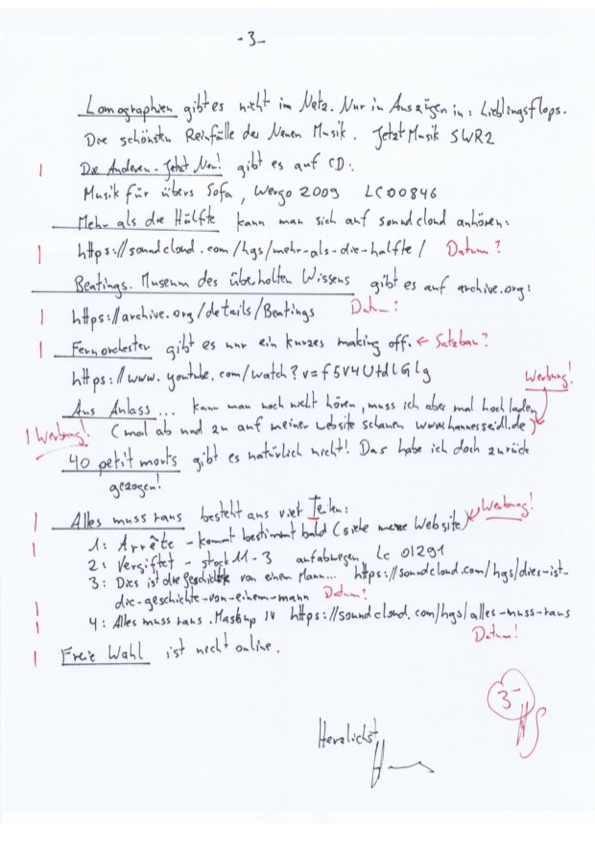 -3-
Lomographien gibt es nicht im Netz. Nur in Auszügen in: Lieblingsflops.
Die schönsten Reinfälle der Neuen Musik. Jetzt Musik SWR2
Die Anderen. Jetzt Neu! gibt es auf CD:
Musik für übers Sofa, Wergo 2009 LC00846
Mehr als die Hälfte kann man sich auf soundcloud anhören:
https://soundcloud.com/hgs/mehr-als-die-halfte/ Datum?
Beatings. Museum des überholten Wissens gibt es auf archive.org:
https://archive.org/details/Beatings Datum?
Fernorchester gibt es nur ein kurzes making off. ← Satzbau?
https://www.youtube.com/watch?v=f5V4UtdLGlg
Werbung!
Aus Anlass... kann man noch nicht hören, muss ich aber mal hochladen
Werbung! (mal ab und zu auf meiner website schauen www.hannesseidl.de)
40 petit morts gibt es natürlich nicht! Das habe ich doch zurück
gezogen!
Alles muss raus besteht aus vier Teilen: Werbung!
1: Arrête - kommt bestimmt bald (siehe meine Website)
2: Vergiftet - stock11-3 aufabwegen LC 01291
3: Dies ist die Geschichte von einem Mann... https://soundcloud.com/hgs/dies-ist-
die-geschichte-von-einem-mann Datum?
4: Alles muss raus. Mashup IV https://soundcloud.com/hgs/alles-muss-raus
Datum!
Freie Wahl ist nicht online.
3-
HS
Herzlichst